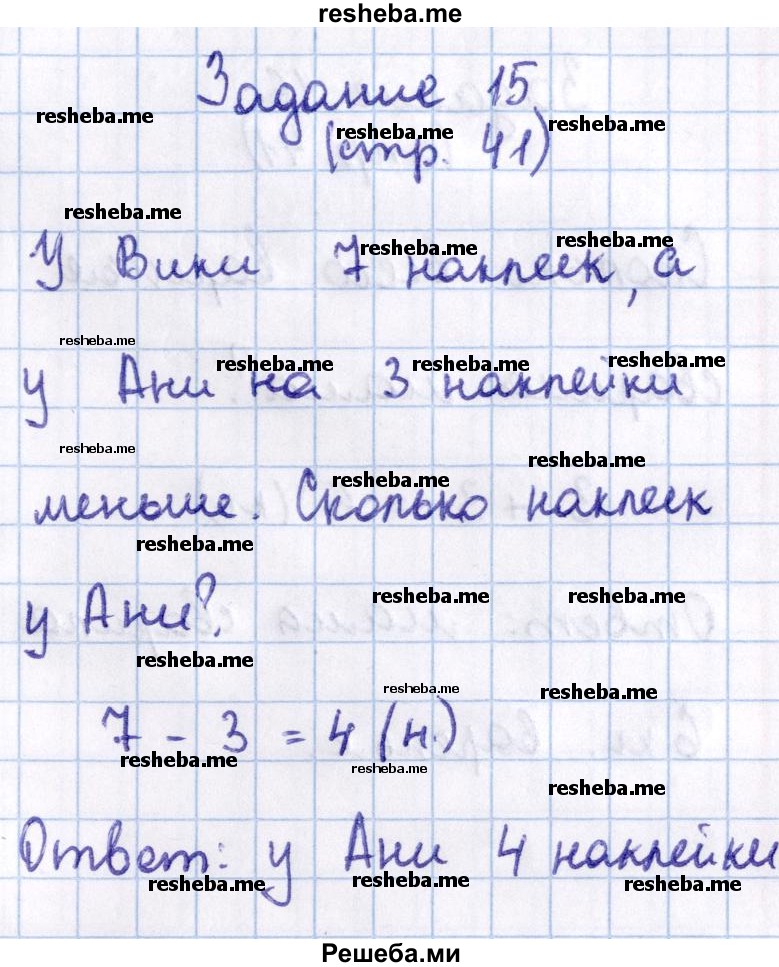 resheba.me
Задание 15
resheba.me
resheba.me
resheba.me
(стр. 41)
resheba.me
resheba.me
resheba.me
У Вики 7 наклеек, а
resheba.me
resheba.me
resheba.me
resheba.me
у Ани на 3 наклейки
resheba.me
resheba.me
resheba.me
меньше. Сколько наклеек
resheba.me
resheba.me
resheba.me
у Ани?
resheba.me
resheba.me
resheba.me
7 - 3 = 4 (н.)
resheba.me
resheba.me
resheba.me
Ответ: у Ани 4 наклейки
resheba.me
resheba.me
resheba.me
Решеба.ми